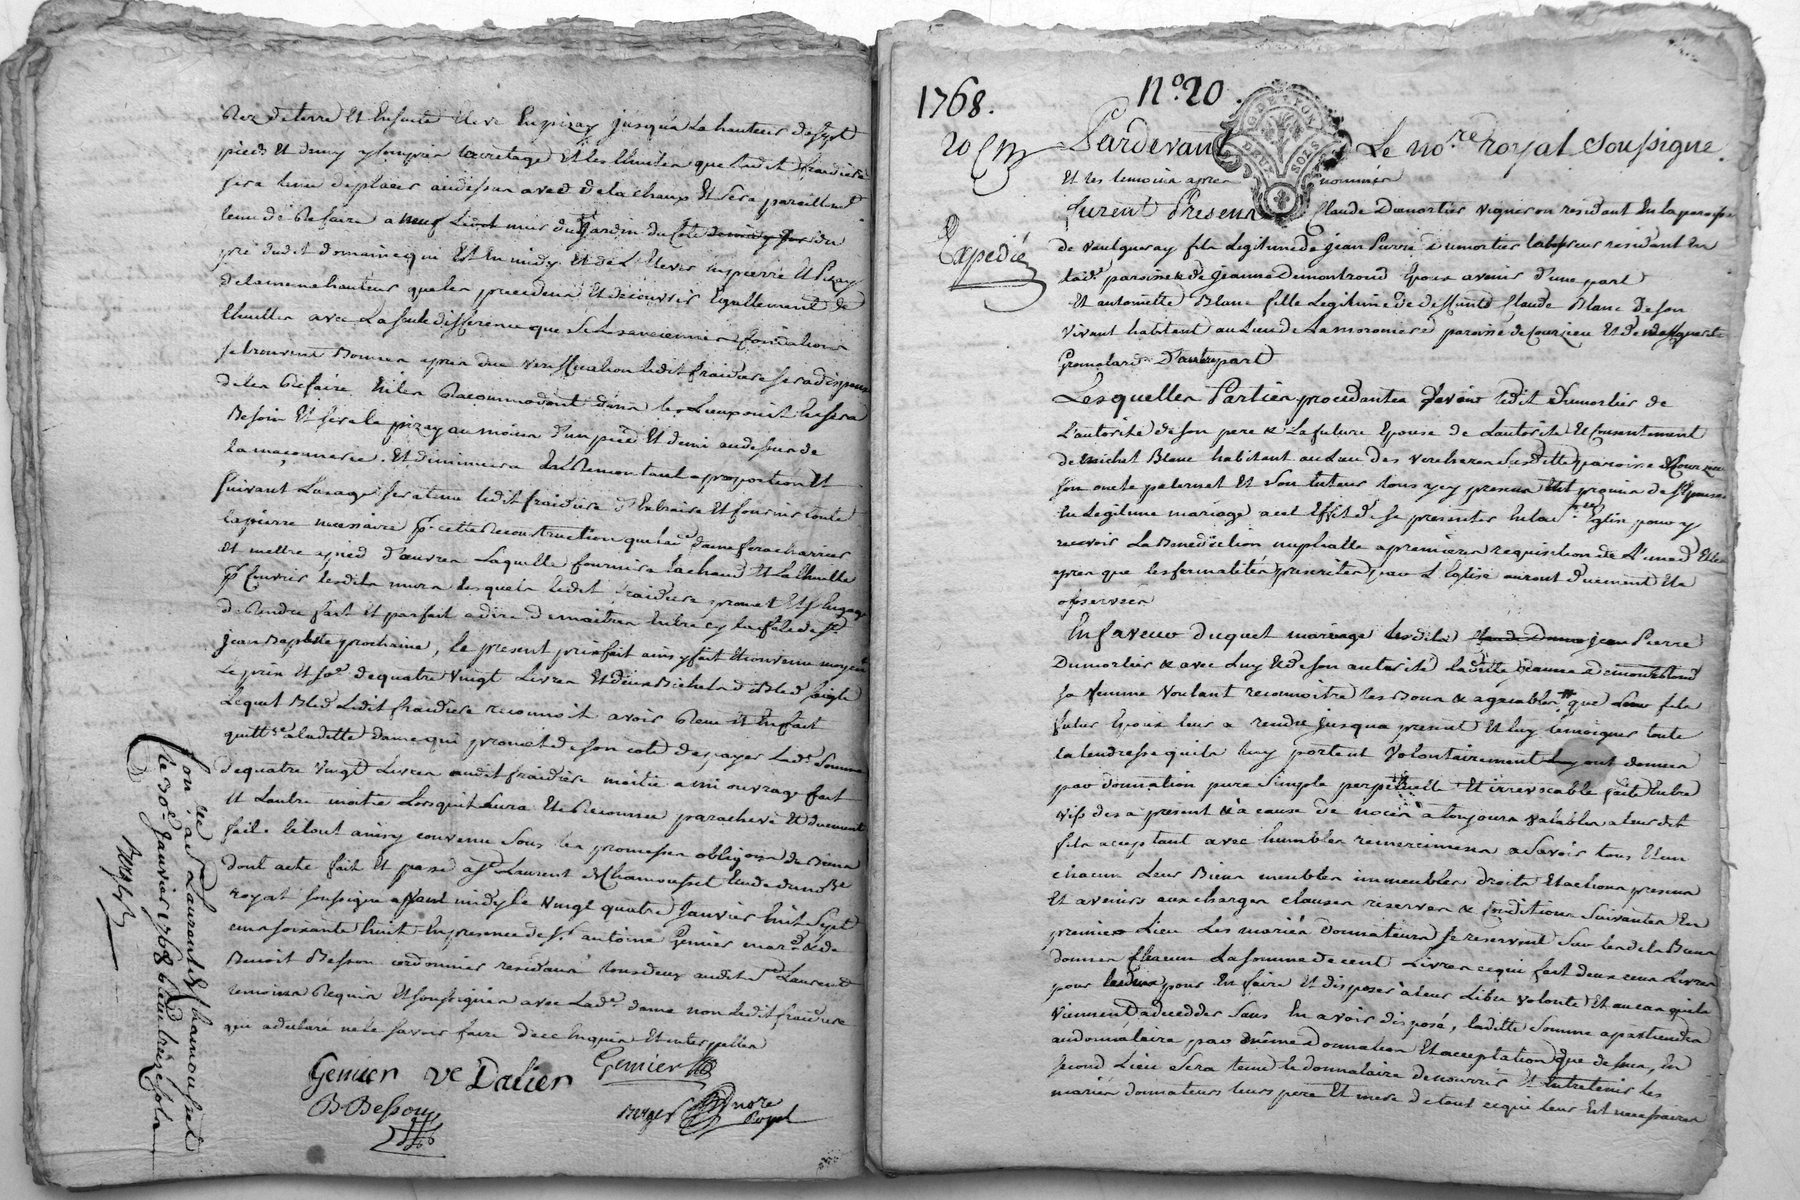 Rez de terre Et Ensuite Eleve En pizay jusqu'a la hauteur de sept
pieds Et demy y compris Et les thuilles que ledit fraidiere
sera tenu de placer audessus avec de la chaux Et sera pareillemt
tenu de Refaire a neuf Ledit mur du Jardin du Coté du
pré dudit domaine qui Est En midy Et de L'Elever En pierre Et Pizay
de la meme hauteur que les precedens Et de couvrir Egallement de
thuilles avec La seule difference que Si Les anciennes fondations
se trouvent Bonnes apres due verification ledit fraidiere sera dispensé
de les Refaire En les Racommodant dans les Lieux ou il En sera
Besoin Et fera le pizay au moins d'un pied Et demi audessus de
la maçonnerie. Et diminuera En Remontant a proportion Et
suivant L'usage sera tenu ledit fraidiere d'Extraire Et fournir toute
la pierre necessaire pr cette Reconstruction que lade dame fera charrier
Et mettre a pied d'œuvre Laquelle fournira la chaux Et La thuille
pr Couvrir lesdits murs lesquels ledit fraidiere promet Et s'Engage
de Rendre fait Et parfait a dire de maitres Entre cy Et la fête de St
jean Baptiste prochaine, le present prixfait ainsy fait Et convenu moyent
Le prix Et soe de quatre Vingt Livres Et deux Bichets de Bled seigle
Lequel Bled Ledit fraidiere reconnoit avoir Reçu Et En fait
quittce a ladette dame qui promet de son coté de payer lade Somme
de quatre Vingt Livres audit fraidiere moitié a mi ouvrage fait
Et L'autre moitié Lorsqu'il sera Et Reconnu parachevé Et duement
fait. le tout ainsy convenu Sous les promesses obligons de Biens
dont acte fait Et passé a St Laurent de Chamousset Etude du nore
royal soussigné apant midy le Vingt quatre Janvier Mil Sept
cens soixante huit En presence de Sr antoine Gemier mard & de
Benoit Besson cordonnier residants tous deux audit St Laurent
temoins Requis Et soussignés avec Lade dame non ledit fraidiere
qui a declaré ne le savoir faire de ce Enquis Et interpellés
Gemier ve Dalier Gemier
B Besson
nore
Royal
Con. ée à St Laurent de Chamousset
le 30e Janvier 1768
1768. No. 20.
GDE LYON
DEUX SOLS
Pardevant Le nore royal soussigné
Et les temoins apres nommes
Expedié
furent Presens Claude Dumortier vigneron residant En la paroisse
de vaulgneray fils Legitime de jean Pierre Dumortier laboureur residant En
lade paroisse & de jeanne Demontrond Epoux avenir d'une part
Et antoinette Blanc fille Legitime de deffunts Claude Blanc De son
vivant habitant au Lieu de paroisse de Courzieu Et de
D'autre part
Lesquelles Parties procedantes savoir ledit Dumortier de
L'autorité de son pere & La future Epouse de L'autorité Et Consentement
de michel Blanc habitant au Lieu des Susditte paroisse de Courzieu
son oncle paternel Et son tuteur tous icy presens Ont promis de s'Epouser
En Legitime mariage a cet Effet de se presenter En lad. Ste Eglise pour y
recevoir La Benediction nuptialle a premieres requisition de L'un d'Eux
apres que les formalités prescrites par L'Eglise auront duement Eté
observées
En faveur duquel mariage lesdits jean Pierre
Dumortier & avec Luy & de son autorité ladette jeanne Demontrond
sa femme voulant reconnoitre les Bons & agreables que fils
futur Epoux leur a rendu jusqua present Et luy temoigner toute
la tendresse qu'ils luy portent volontairement ont donnés
par donnation pure Simple perpetuelle Et irrevocable faite Entre
vifs des a present & a cause de noces a toujours valables a leurdit
fils acceptant avec humbles remercimens a Savoir tous Et un
chacun Leur Biens meubles immeubles droits Et actions presens
Et avenirs aux charges clauses reserves & conditions Suivantes En
premier Lieu Les mariés donnateurs se reservent Sur lesdits Biens
donnés chacun La somme de cent Livres ce qui fait deux cens Livres
pour les deux pour En faire Et disposer a leur Libre volonté Et au cas qu'ils
viennent a decedder Sans En avoir disposé, ladette Somme apartiendra
au donnataire par même donnation Et acceptation que dessus, En
second Lieu Sera tenu le donnataire de nourrir Et Entretenir les
mariés donnateurs leurs pere Et mere de tout ce qui leur Est necessaires